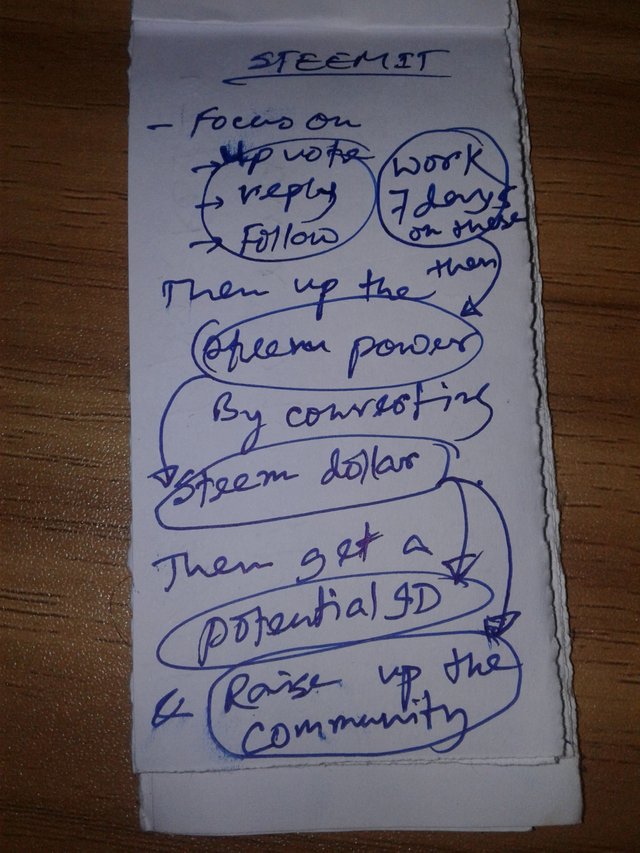 STEEMIT
- Focus on
→ Up vote
→ reply
→ Follow
work
7 days
on these
then
Then up the
steem power
By converting
Steem dollar
Then get a
potential ID
& Raise up the
community